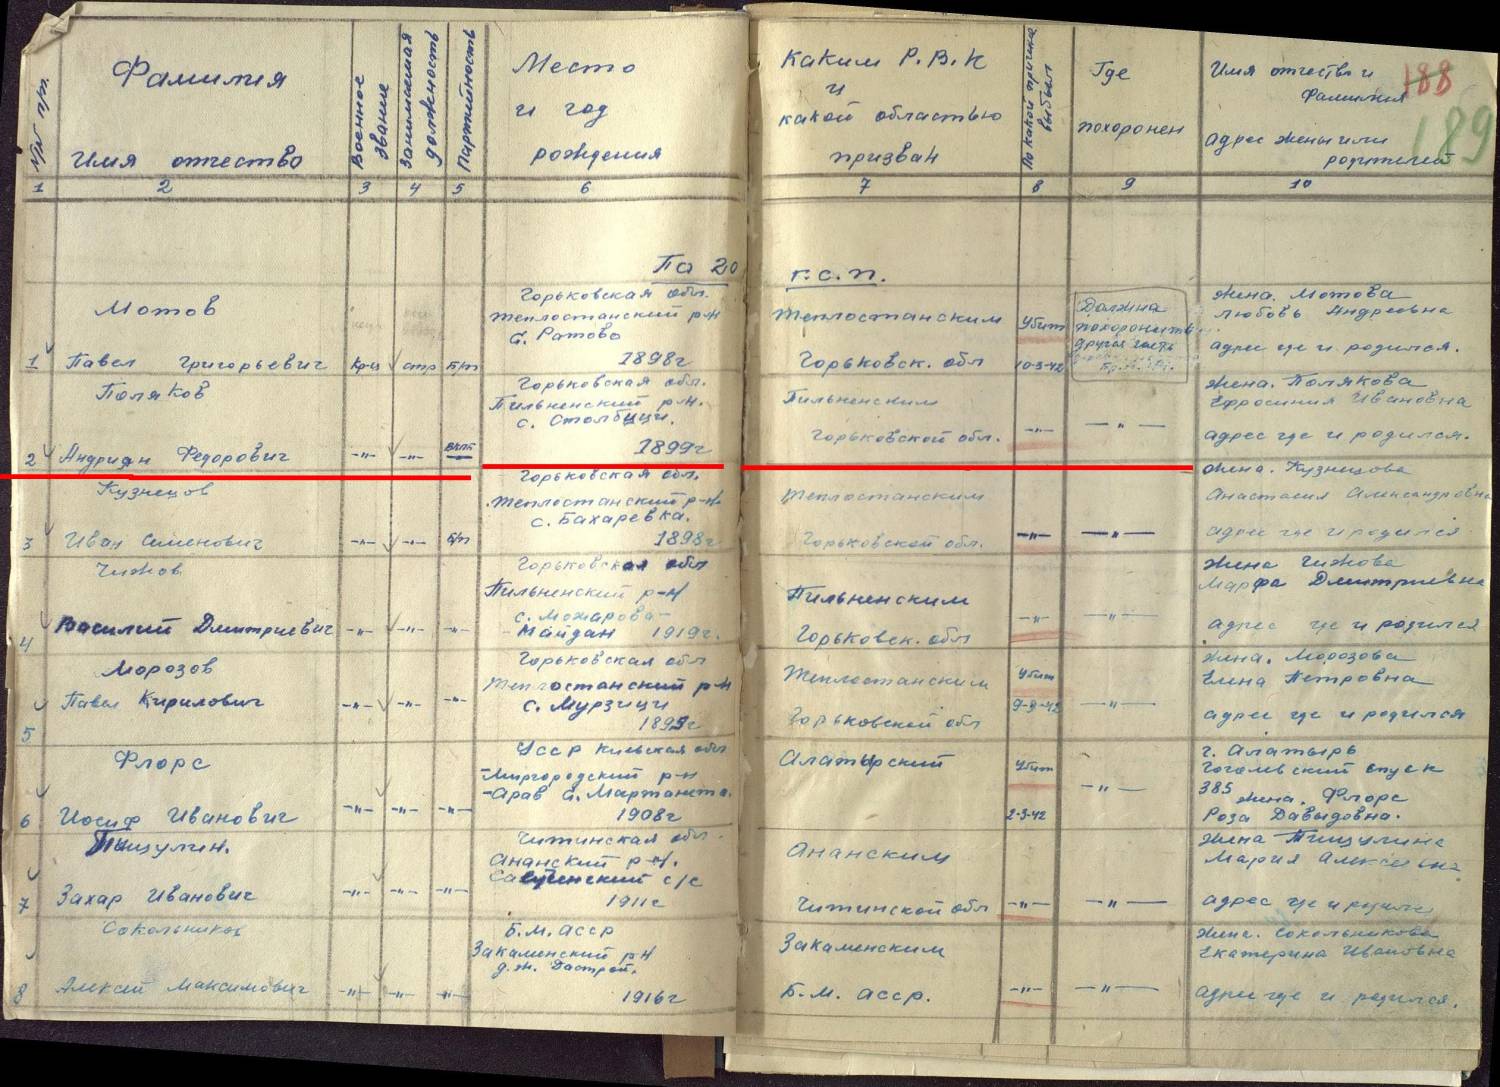 №№ пр.
Фамилия
Имя отчество
Военное звание
Занимаемая должность
Партийность
Место
и год
рождения
Каким Р.В.К
и
какой областью
призван
По какой причине выбыл
Где
похоронен
Имя отчество и
фамилия
адрес жены или
родителей
188
189
1 2 3 4 5 6 7 8 9 10
По 20 г.с.п.
Мотов
1 Павел Григорьевич
кр-ц стр б/п
Горьковская обл.
Теплостанский р-н
с. Ратово
1898г
Теплостанским
Горьковск. обл
Убит
10-3-42
Должна
похоронить
другая часть
жена. Мотова
Любовь Андреевна
адрес где и родился.
Поляков
2 Андриан Федорович
-"- -"- ВКП
Горьковская обл.
Пильненский р-н.
с. Столбищи.
1899г
Пильненским
Горьковской обл.
-"- -"-
жена. Полякова
Ефросиния Ивановна
адрес где и родился.
Кузнецов
3 Иван Семенович
-"- -"- б/п
Горьковская обл.
Теплостанский р-н
с. Бахаревка.
1898г
Теплостанским
Горьковской обл.
-"- -"-
жена. Кузнецова
Анастасия Александровна
адрес где и родился
Чижов
4 Василий Дмитриевич
-"- -"- -"-
Горьковская обл
Пильненский р-н
с. Можарова-
-Майдан 1919г.
Пильненским
Горьковск. обл
-"- -"-
жена Чижова
Марфа Дмитриевна
адрес где и родился
Морозов
5 Павел Кирилович
-"- -"- -"-
Горьковская обл
Теплостанский р-н
с. Мурзици
1895г
Теплостанским
Горьковской обл
Убит
9-3-42
-"-
жена. Морозова
Елена Петровна
адрес где и родился
Флорс
6 Иосиф Иванович
-"- -"- -"-
УССР Киевская обл
Миргородский р-н
1908г
Алатырский
Убит
2-3-42
-"-
г. Алатырь
Гоголевский спуск
385
жена. Флорс
Роза Давыдовна.
Пищулин.
7 Захар Иванович
-"- -"- -"-
Читинская обл.
Ананский р-н.
с/с
1911г
Ананским
Читинской обл
-"- -"-
жена Пищулина
Мария Алексеевна
адрес где и родился
Сокольников
8 Алексей Максимович
-"- -"- -"-
Б.М. АССР
Закаменский р-н
1916г
Закаменским
Б.М. АССР.
-"- -"-
жена. Сокольникова
Екатерина Ивановна
адрес где и родился.